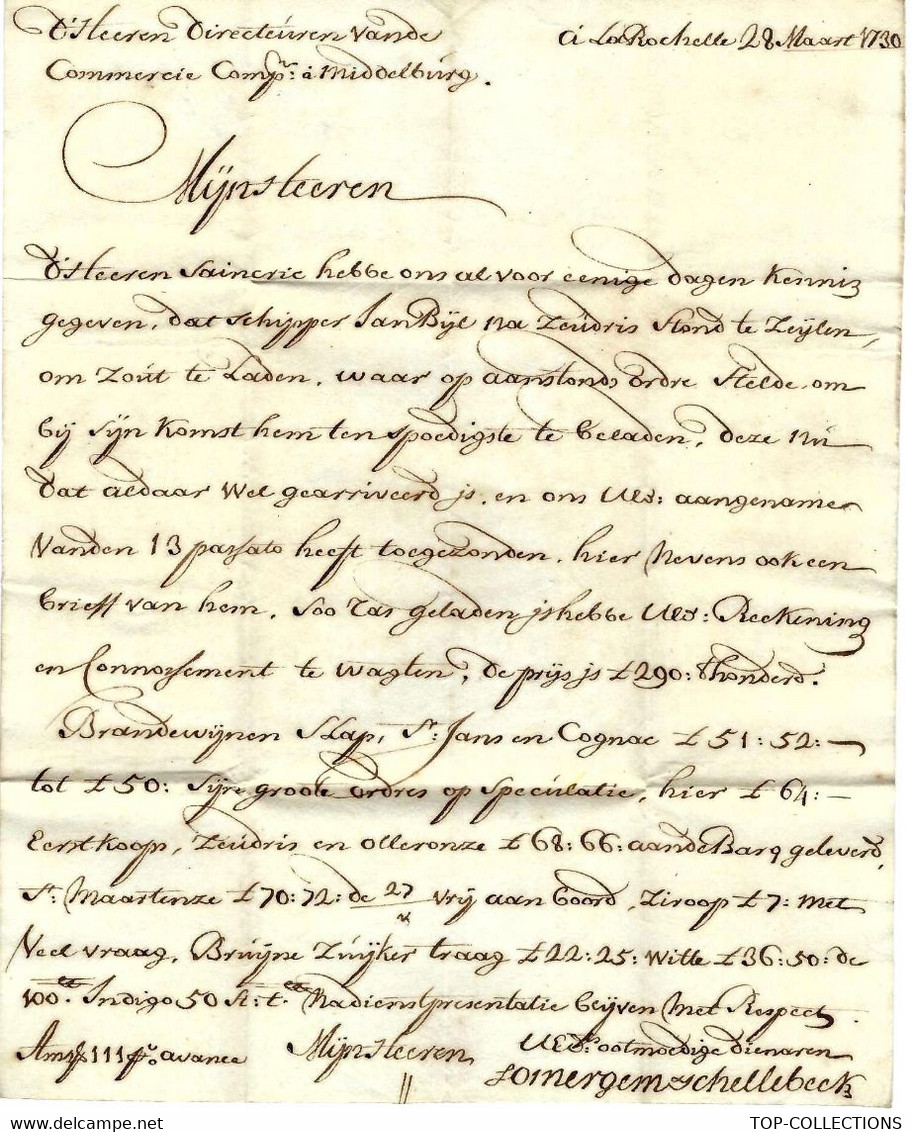 D'Heeren Directeuren vande
Commercie Compe. â Middelburg.
â LaRochelle 28 Maart 1730
Mijn Heeren
D'Heeren Sainerie hebbe ons al voor eenige dagen kennis
gegeven, dat schipper Jan Bijl na Zeudris Stond te Zeylen,
om Zout te Laden, waar op aanstonds ordre Stelde om
bij Sijn Komst hem ten spoedigste te beladen, deze nu
dat aldaar wel gearriveerd js, en ons UEd: aangename
vanden 13 passato heeft toegezonden, hier nevens ook een
brieff van hem, Soo Ras geladen js hebbe UEd: Reekening
en Connossement te wagten, de prijs js £ 290: thonderd.
Brandewijnen Slap, St. Jans en Cognac £ 51: 52: —
tot £ 50: Sijn groote ordres op speculatie, hier £ 64: —
Eerstkoop, Zeudris en olleronze £ 68: 66: aande Barq geleverd,
St. Maartenze £ 70: 72: de 27 vrij aan boord, Ziroop £ 7: met
veel vraag, Bruijne Zuijker traag £ 22: 25: witte £ 36: 50: de
100 Indigo 50 St: Na dienstpresentatie blijven met Respect.
Mijn Heeren
UEd. ootmoedige dienaren
Somergem & Schellebeck
Ams 111 avance
TOP-COLLECTIONS